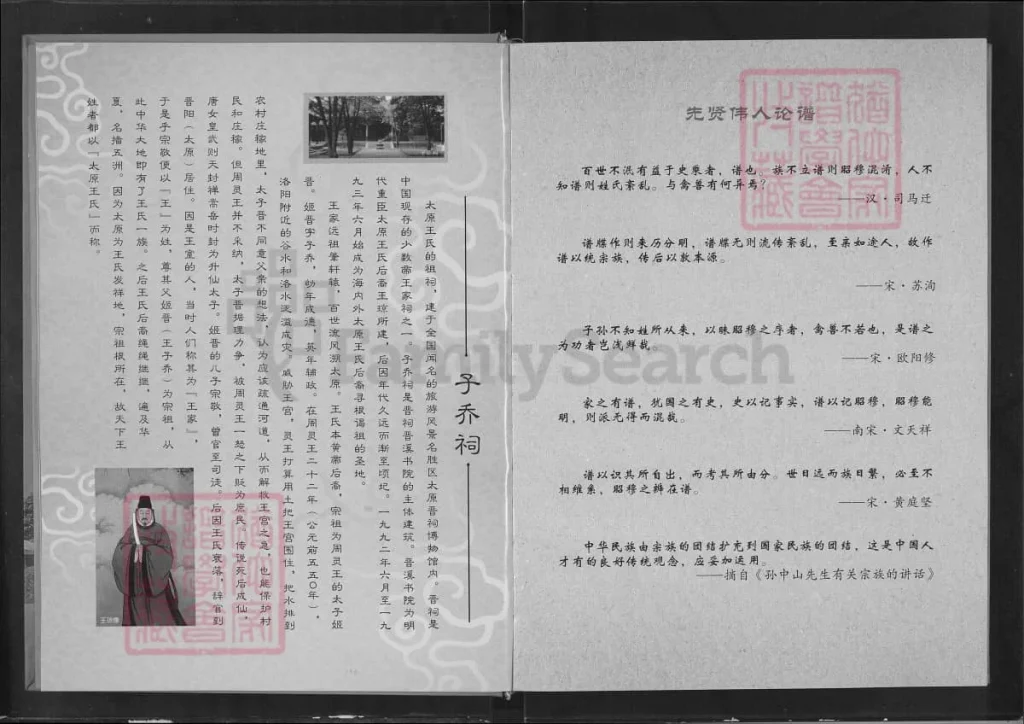 子乔祠
太原王氏的祖祠，建于全国闻名的旅游风景名胜区太原晋祠博物馆内。晋祠是
中国现存的少数廊王家祠之一。子乔祠是晋祠晋溪书院的主体建筑。晋溪书院为明
代重臣太原王氏后裔王琼所建，后因年代久远而渐至顷圮。一九九二年六月至一九
九三年六月始成为海内外太原王氏后裔寻根谒祖的圣地。
王家远祖肇轩辕，百世流风溯太原。王氏本黄帝后裔，宗祖为周灵王的太子姬
晋。姬晋字子乔，幼年成德，英年辅政。在周灵王二十二年（公元前五五〇年），
洛阳附近的谷水和洛水泛滥成灾。威胁王宫，灵王打算用土把王宫围住，把水排到
农村庄稼地里，太子晋不同意父亲的想法，认为应该疏通河道，从而解救王宫之急，也能保护村
民和庄稼。但周灵王并不采纳，太子晋据理力争，被周灵王一怒之下贬为庶民，传说死后成仙。
唐女皇武则天封禅嵩岳时封为升仙太子。姬晋的儿子宗敬，曾官至司徒。后因王氏衰落，辞官到
晋阳（太原）居住。因是王室的人，当时人们称其为“王家”，
于是乎宗敬便以“王”为姓，尊其父姬晋（王子乔）为宗祖，从
此中华大地即有了王氏一族。之后王氏后裔绳绳继继，遍及华
夏，名播五洲。因为太原为王氏发祥地，宗祖根所在，故天下王
姓者都以“太原王氏”而称。
先贤伟人论谱
百世不泯有益于史乘者，谱也。族不立谱则昭穆混淆，人不
知谱则姓氏紊乱。与禽兽有何异焉？
——汉·司马迁
谱牒作则来历分明，谱牒无则流传紊乱，至亲如途人，故作
谱以统宗族，传后以敦本源。
——宋·苏洵
子孙不知姓所从来，以昧昭穆之序者，禽兽不若也，是谱之
为功者岂浅鲜哉。
——宋·欧阳修
家之有谱，犹国之有史，史以记事实，谱以记昭穆，昭穆能
明，则派无得而混哉。
——南宋·文天祥
谱以识其所自出，而考其所由分。世日远而族日繁，必至不
相维系，昭穆之辨在谱。
——宋·黄庭坚
中华民族由宗族的团结扩充到国家民族的团结，这是中国人
才有的良好传统观念，应妥加运用。
——摘自《孙中山先生有关宗族的讲话》
FamilySearch